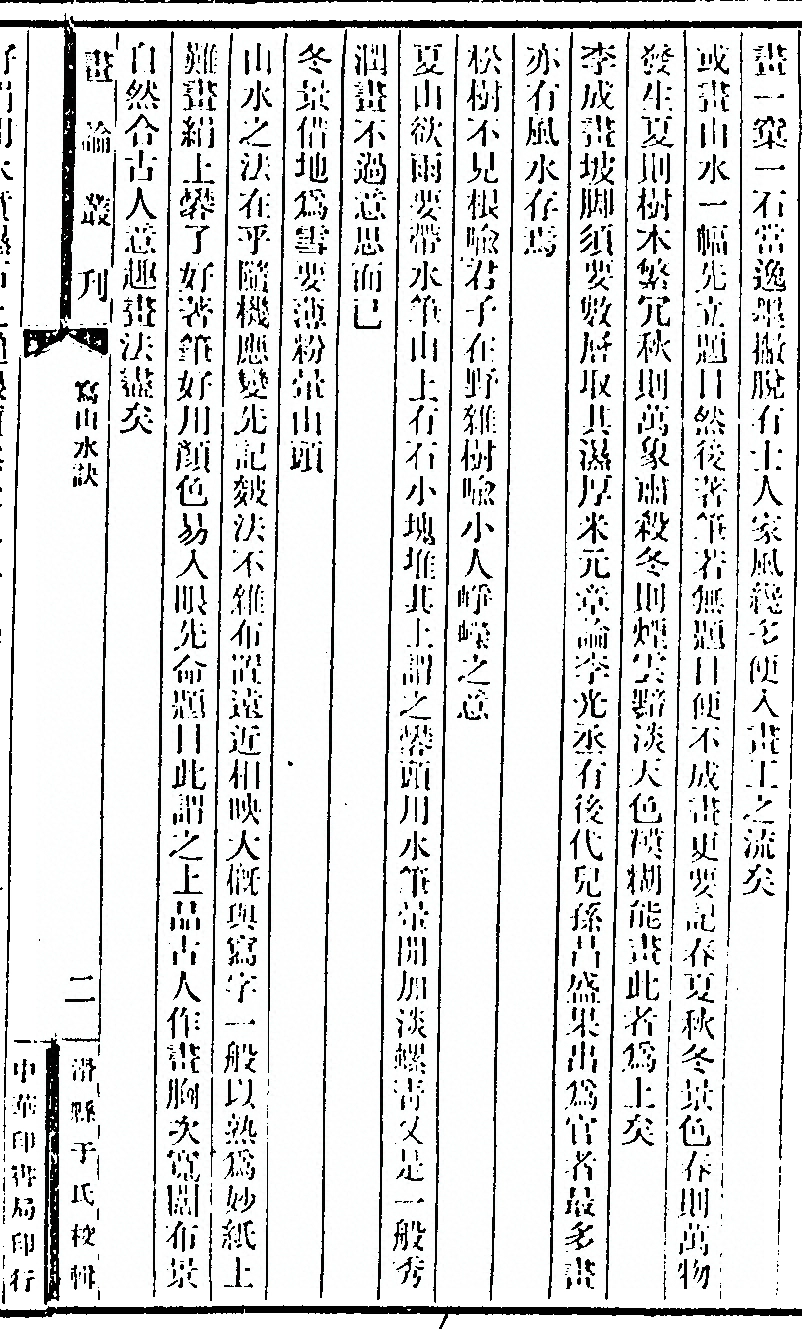 畫一窠一石當逸墨撇脫有士人家風纔多便入畫工之流矣
或畫山水一幅先立題目然後著筆若無題目便不成畫更要記春夏秋冬景色春則萬物
發生夏則樹木繁冗秋則萬象肅殺冬則煙雲黯淡天色模糊能畫此者爲上矣
李成畫坡腳須要數層取其濕厚米元章論李光丞有後代兒孫昌盛果出爲官者最多畫
亦有風水存焉
松樹不見根喻君子在野雜樹喻小人崢嶸之意
夏山欲雨要帶水筆山上有石小塊堆其上謂之礬頭用水筆暈開加淡螺青又是一般秀
潤畫不過意思而已
冬景借地爲雪要薄粉暈山頭
山水之法在乎隨機應變先記皴法不雜布置遠近相映大概與寫字一般以熟爲妙紙上
難畫絹上礬了好著筆好用顏色易入眼先命題目此謂之上品古人作畫胸次寬闊布景
自然合古人意趣畫法盡矣
畫論叢刊 寫山水訣 二 滑縣于氏校輯
中華印書局印行